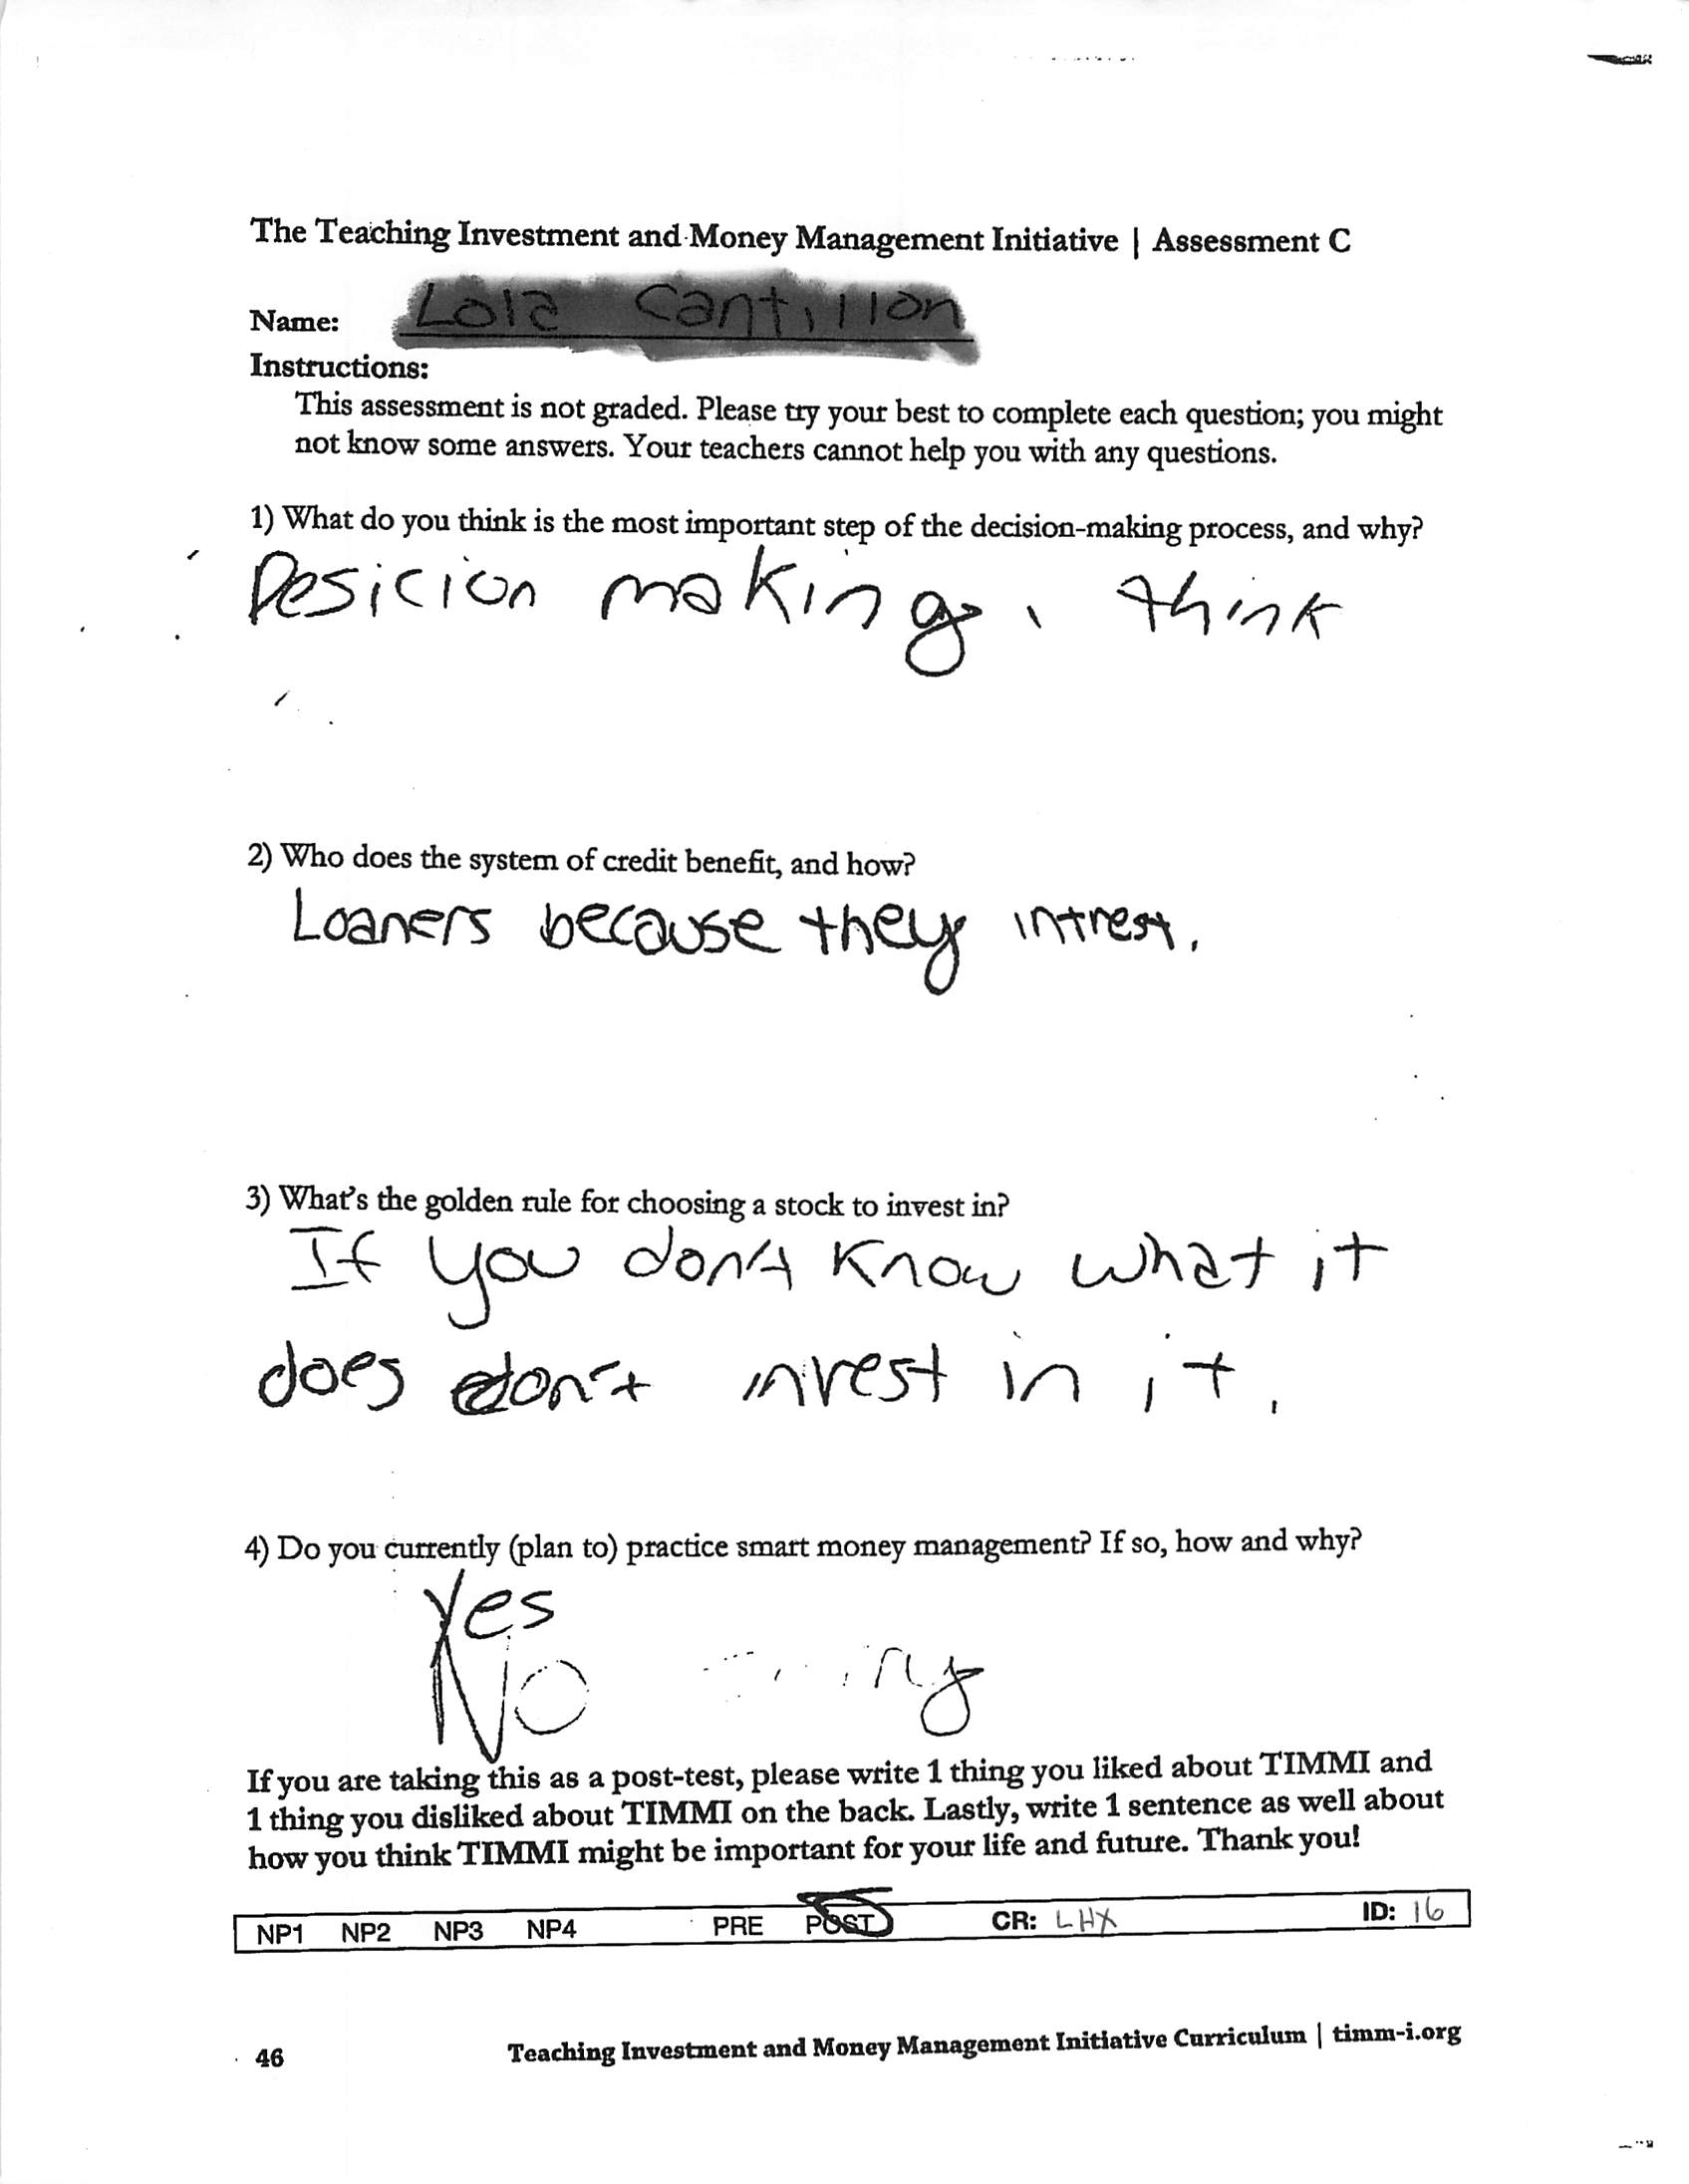 The Teaching Investment and Money Management Initiative | Assessment C
Name:
Instructions:
This assessment is not graded. Please try your best to complete each question; you might
not know some answers. Your teachers cannot help you with any questions.
1) What do you think is the most important step of the decision-making process, and why?
Desicion making, think
2) Who does the system of credit benefit, and how?
Loaners because they intrest.
3) What's the golden rule for choosing a stock to invest in?
If you don't know what it
does don't invest in it.
4) Do you currently (plan to) practice smart money management? If so, how and why?
Yes
No
If you are taking this as a post-test, please write 1 thing you liked about TIMMI and
1 thing you disliked about TIMMI on the back. Lastly, write 1 sentence as well about
how you think TIMMI might be important for your life and future. Thank you!
NP1 NP2 NP3 NP4 PRE POST CR: LHX ID: 16
46 Teaching Investment and Money Management Initiative Curriculum | timm-i.org